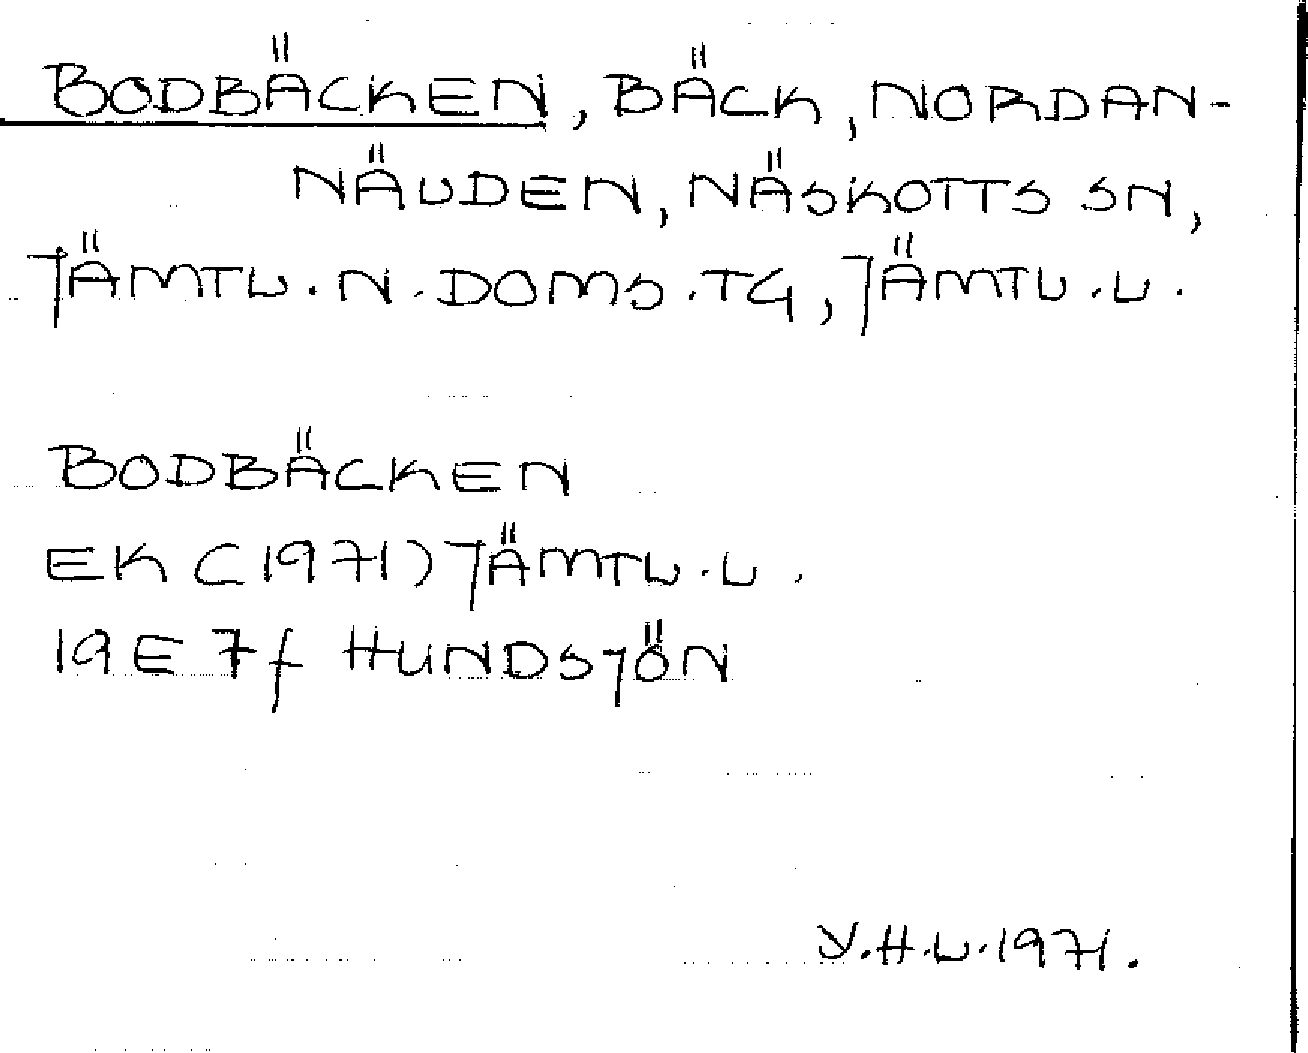 BODBÄCKEN, BÄCK, NORDAN-
NÄLDEN, NÄSKOTTS SN,
JÄMTL. N. DOMS.TG, JÄMTL.L.
BODBÄCKEN
EK (1971) JÄMTL.L.
19E 7f HUNDSJÖN
Y.H.L.1971.